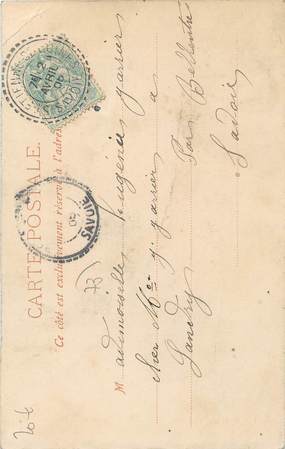 CARTE POSTALE.
Ce côté est exclusivement réservé à l'adresse
Mademoiselle Eugénie Garrier
chez Mr J. Garrier
à
Landry
Par Bellentre
Savoie
(73)
2 AVRIL 05
SAVOIE
05
20 €